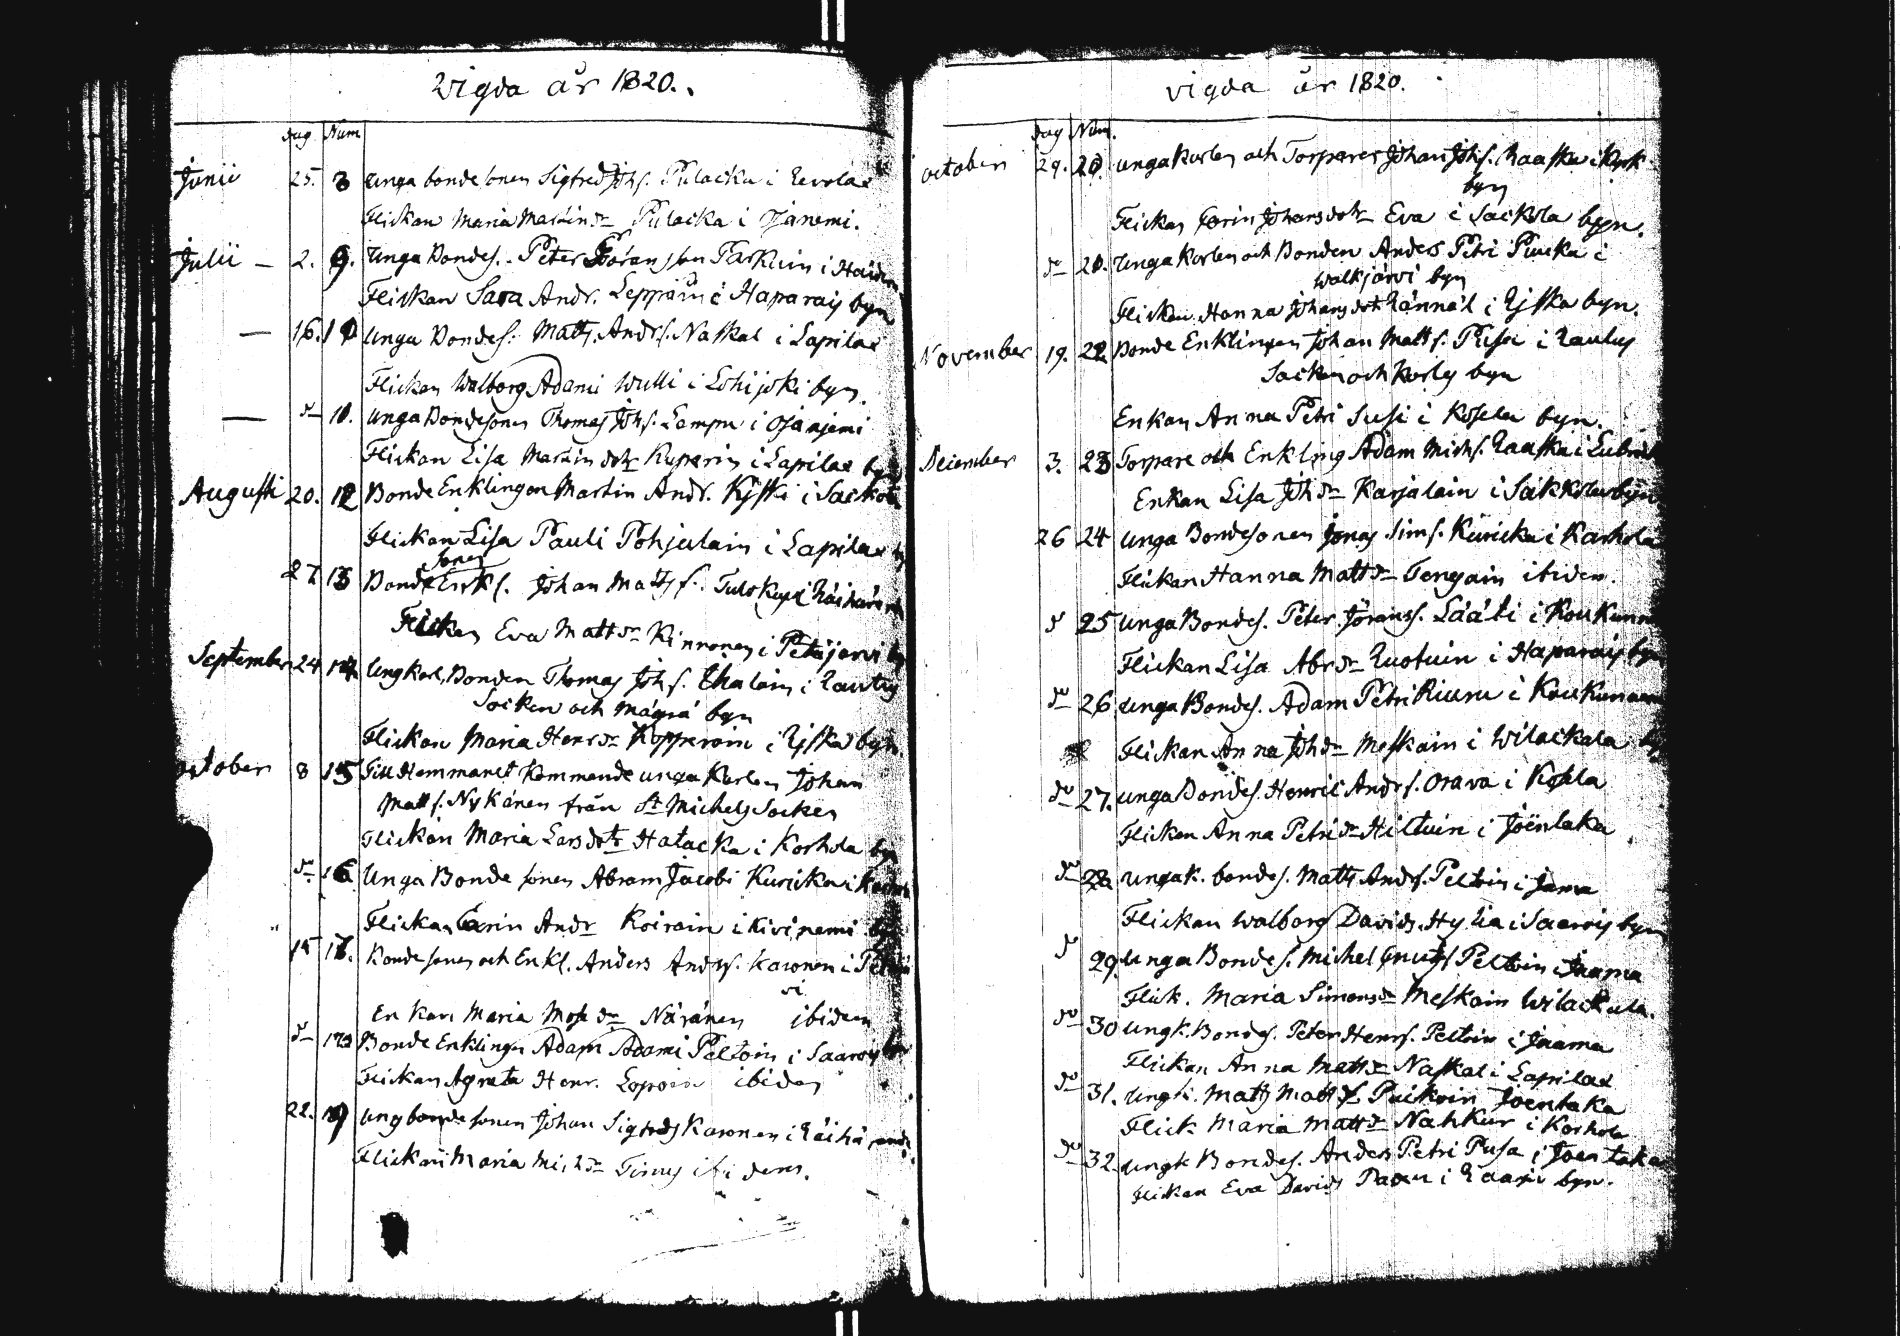 Vigda år 1820.
Dag Num
Junii 25. 8 Unga bondesonen Sigfred Johs. Pulacka i
Flickan Maria Martinsdr Pulacka i
Julii – 2. 9. Unga Bondes. Peter Göransson Tarkiain i
Flickan Sara Andr. Leppäin i Haparais byn
— 16. 10 Unga Bondes. Matts Andrs. Naskal i Lapilax
Flickan Walborg Adami Wulli i Lohijoki byn.
— do 10. Unga Bondesonen Thomas Johs. Lampu i
Flickan Lisa Martinsdotr Kuparin i Lapilax byn
Augusti 20. 12 Bonde Enklingen Martin Andr. Kiiski i Sackola
Flickan Lisa Pauli Pohjalain i Lapilax by
sonen
27. 13 Bonde Enkl. Johan Matts s.
Flickan Eva Mattsdr Kinnonen i Petäjärvi by
September 24 14. Ungkarl. Bonden Thomas Johs. i Rautus
Socken och Mägrä byn
Flickan Maria Henrdr Kopperoin i Riska byn
October 8 15 Till Hemmanet Kommande unga Karlen Johan
Matts s. Nykänen från St Michels Socken
Flickan Maria Larsdotr Hatacka i Korhola byn
do 16 Unga Bonde sonen Abram Jacobi Kuricka i
Flickan Carin Andr Koirain i Kivinemi by
15 17. Bondesonen och Enkl. Anders Andrs. Karonen i Petäjä
vi
Enkan Maria Mosedr Näränen ibidem
do 17 Bonde Enklingen Adam Adami Peltoin i Saarois byn
Flickan Agneta Henr. Lopoin ibidem
22. 19 Ung bondesonen Johan Sigfreds Karonen i
Flickan Maria Michdr ibidem.
vigda år 1820.
Dag Num.
October 29. 20. Unga Karlen och Torparen Johan Johs. Raaska i Kirk
byn
Flickan Carin Johansdotr Eva i Sackola byn.
do 21. Unga Karlen och Bonden Anders Petri Plucka i
Walkjärvi byn
Flickan Hanna Johansdotr Rännäl i Riska byn.
November 19. 22 Bonde Enklingen Johan Matts s. Pusa i Rautus
Socken och byn
Enkan Anna Petri Susi i Kosela byn.
December 3. 23 Torpare och Enkling Adam Michs. Raaska i
Enkan Lisa Johdr Karjalain i Sakkola byn
26 24 Unga Bondesonen Jonas Sims. Kuricka i Karhola
Flickan Hanna Mattsdr Tengain ibidem.
do 25 Unga Bondes. Peter Jöranss. Lääti i Koukunn
Flickan Lisa Abrdr Ruotuin i Haparais byn
do 26 Unga Bondes. Adam Petri Riuru i Koukunaem
Flickan Anna Johdr Meskain i Wilackala by
do 27. Unga Bondes. Henric Andrs. Orava i Kosela
Flickan Anna Petridr Hiltuin i Joëntaka
do 28 Unga k. bondes. Matts Ands. Peltoin i Jama
Flickan Walborg Davids. Hylia i Saarois byn
do 29. Unga Bondes. Michel Peltoin i Jaama
Flick. Maria Simonsdr Meskain Wilackala.
do 30 Ung k. Bondes. Peter Henrs. Peltoin i Jaama
Flickan Anna Mattsdr Naskal i Lapilax
do 31. Ung k. Matts Matts s. Puikoin Joentaka
Flick Maria Mattsdr Nahkur i Korhola
do 32. Ung k Bondes. Anders Petri Pusa i Joentaka
Flickan Eva Davids Paxu i byn.